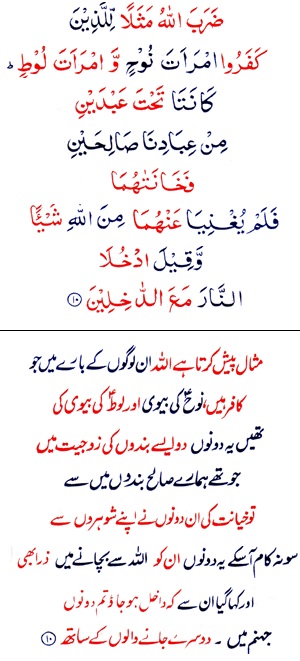 ضَرَبَ اللّٰهُ مَثَلًا لِّلَّذِيْنَ
كَفَرُوا امْرَاَتَ نُوْحٍ وَّ امْرَاَتَ لُوْطٍ ؕ
كَانَتَا تَحْتَ عَبْدَيْنِ
مِنْ عِبَادِنَا صَالِحَيْنِ
فَخَانَتٰهُمَا
فَلَمْ يُغْنِيَا عَنْهُمَا مِنَ اللّٰهِ شَيْـًٔا
وَّقِيْلَ ادْخُلَا
النَّارَ مَعَ الدّٰخِلِيْنَ ﴿۱۰﴾
مثال پیش کرتا ہے اللہ ان لوگوں کے بارے میں جو
کافر ہیں، نوحؑ کی بیوی اور لوطؑ کی بیوی کی
تھیں یہ دونوں دو ایسے بندوں کی زوجیت میں
جو تھے ہمارے صالح بندوں میں سے
تو خیانت کی ان دونوں نے اپنے شوہروں سے
سو نہ کام آسکے یہ دونوں ان کو اللہ سے بچانے میں ذرا بھی
اور کہا گیا ان سے کہ داخل ہو جاؤ تم دونوں
جہنم میں ۔ دوسرے جانے والوں کے ساتھ ﴿۱۰﴾